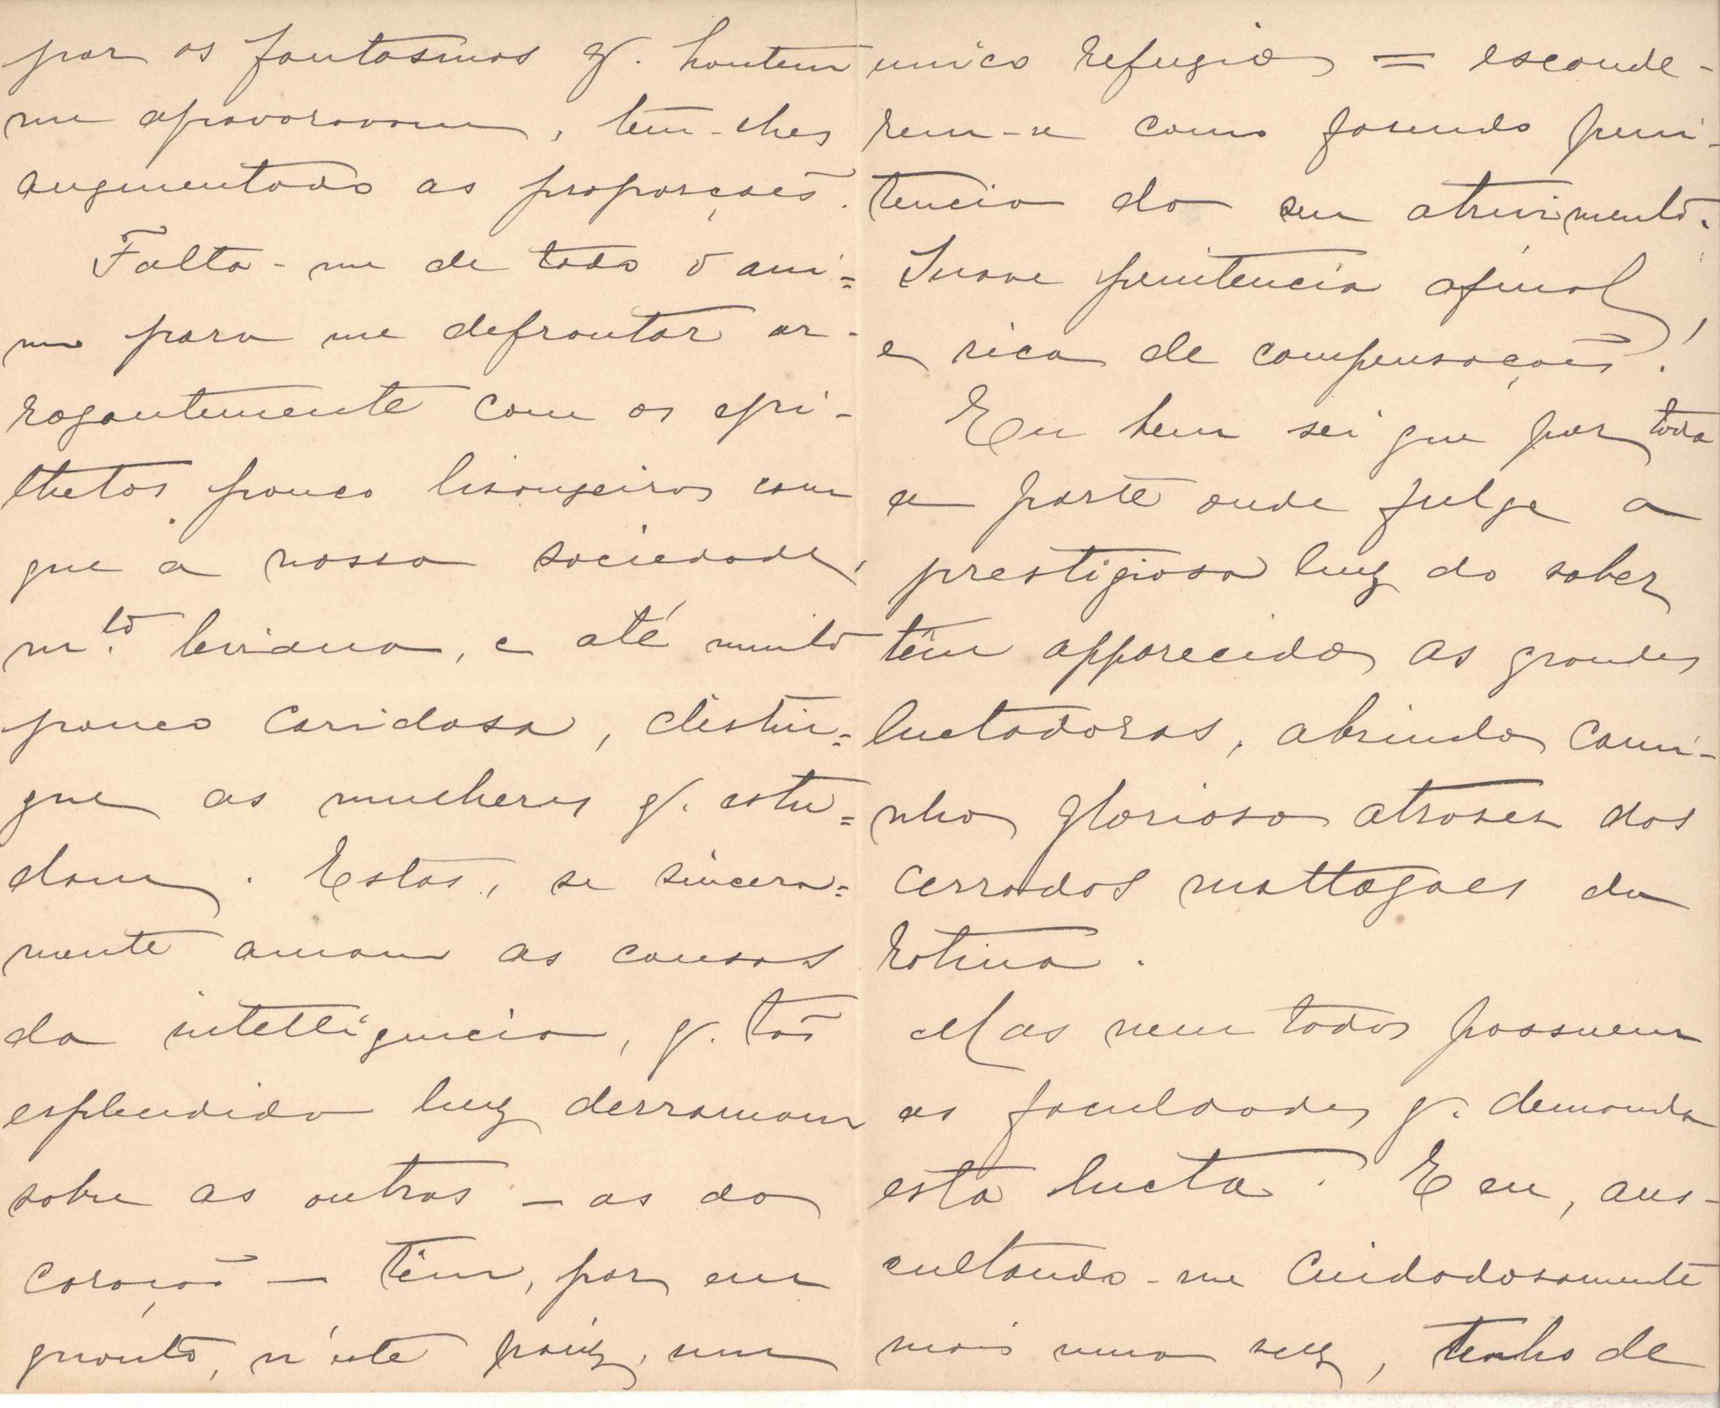 par os fantasmas q. hontem
me apavoravam, tem-lhes
augmentado as proporçoẽs.
Falta-me de todo o ani=
mo para me defrontar ar-
rogantemente com os epi-
thetos pouco lisongeiros com
que a nossa sociedade,
m.to leviana, e até muito
pouco caridosa, distin=
gue as mulheres q. estu=
dam. Estas, se sincera=
mente amam as cousas
da intelligencia, q. taõ
esplendida luz derramam
sobre as outras – as do
coraçaõ – têm, por em
quanto, n'este paiz, um
unico refugio = esconde-
rem-se como fasendo peni-
tencia do seu atrevimento.
Suave penitencia afinal,
e rica de compensaçoẽs!
Eu bem sei que por toda
a parte onde fulge a
prestigiosa luz do saber
têm apparecido as grandes
luctadoras, abrindo cami-
nho glorioso atraves dos
cerrados mattagaes da
rotina.
Mas nem todos possuem
as faculdades q. demanda
esta lucta. E eu, aus-
cultando-me cuidadosamente
mais uma vez, tenho de